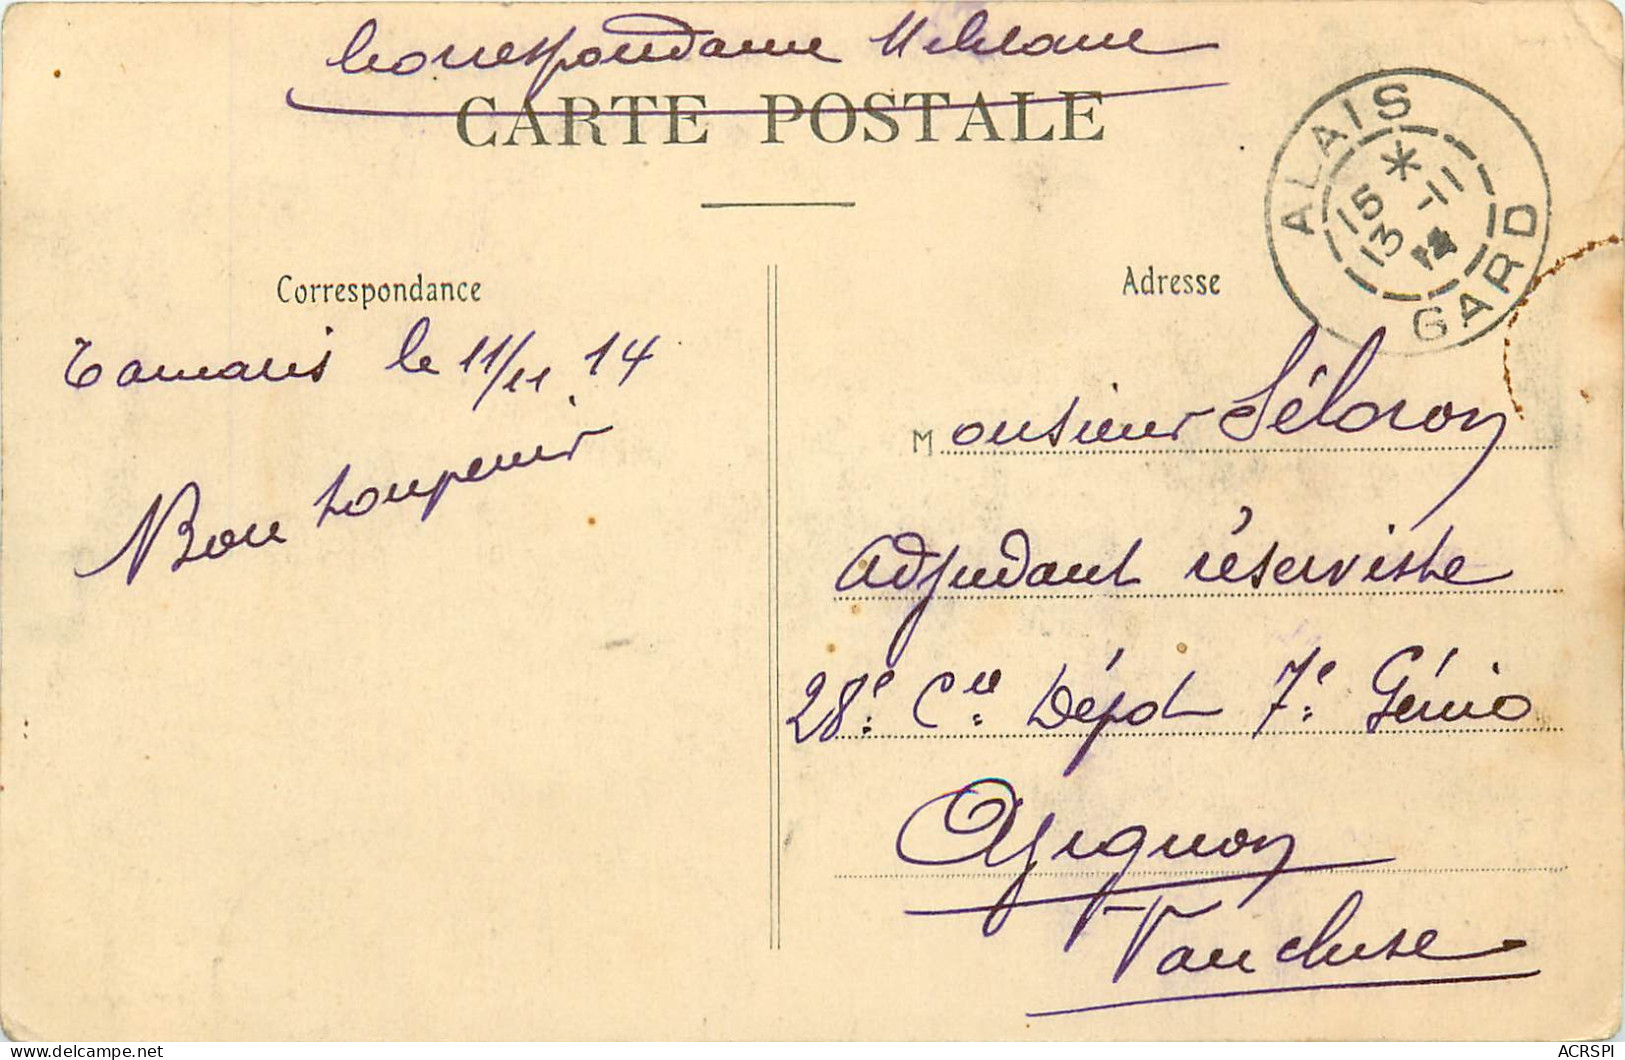 Correspondance Militaire
CARTE POSTALE
ALAIS
*
15 -11
13 14
GARD
Correspondance
Tamaris le 11/11 14
Bon souvenir
Adresse
Monsieur Séloron
Adjudant réserviste
28e Cie Dépôt 7e Génie
Avignon
Vaucluse
ACRSPI